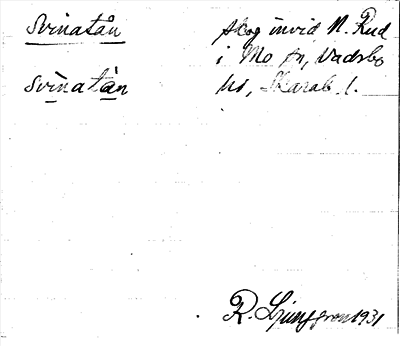 Svinatån skog invid N. Rud
i Mo sn, Vadsbo
Svinatån hd, Skarab. l.
R. Ljunggren 1931